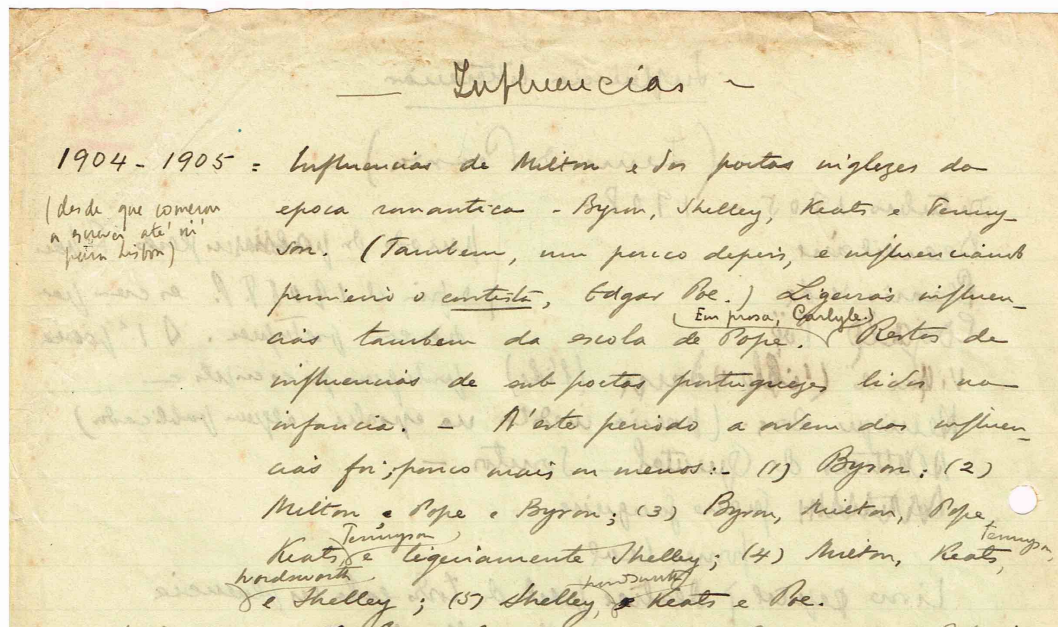 — Influencias —
1904-1905 = Influencias de Milton e dos poetas inglezes da
epoca romantica - Byron, Shelley, Keats e Tenny-
son. (Tambem, um pouco depois, e influenciando
primeiro o contista, Edgar Poe.) Ligeiras influen-
(Em prosa, Carlyle.)
cias tambem da escola de Pope. Restos de
influencias de sub-poetas portuguezes lidos na
infancia. - N'este periodo a ordem das influen-
cias foi, pouco mais ou menos:- (1) Byron; (2)
Milton e Pope e Byron; (3) Byron, Milton, Pope,
Tennyson
Tennyson,
Keats, e ligeiramente Shelley; (4) Milton, Keats,
Wordsworth
Wordsworth
e Shelley; (5) Shelley, e Keats e Poe.
(desde que comecei
a escrever até vir
para Lisboa)